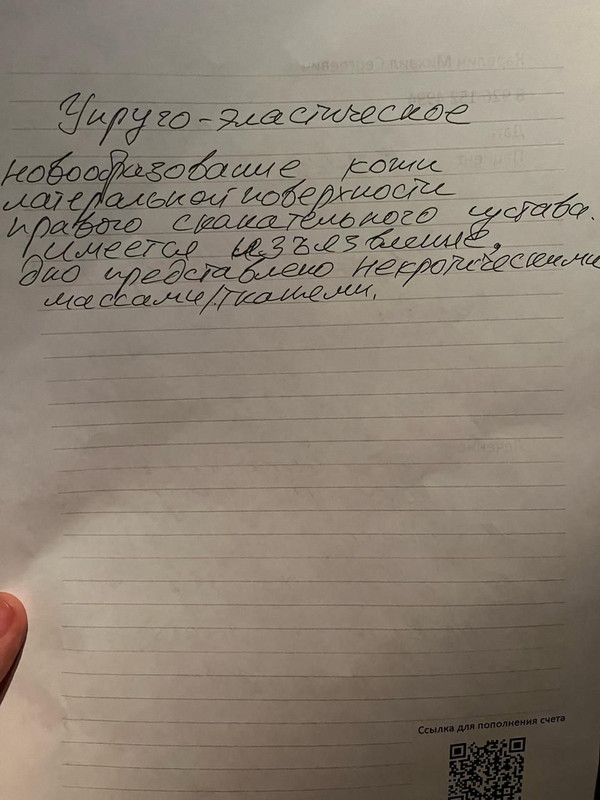 Упруго-эластическое
новообразование кожи
латеральной поверхности
правого скакательного сустава.
имеется изъязвление.
дно представлено некротическими
массами/тканями.
Ссылка для пополнения счета